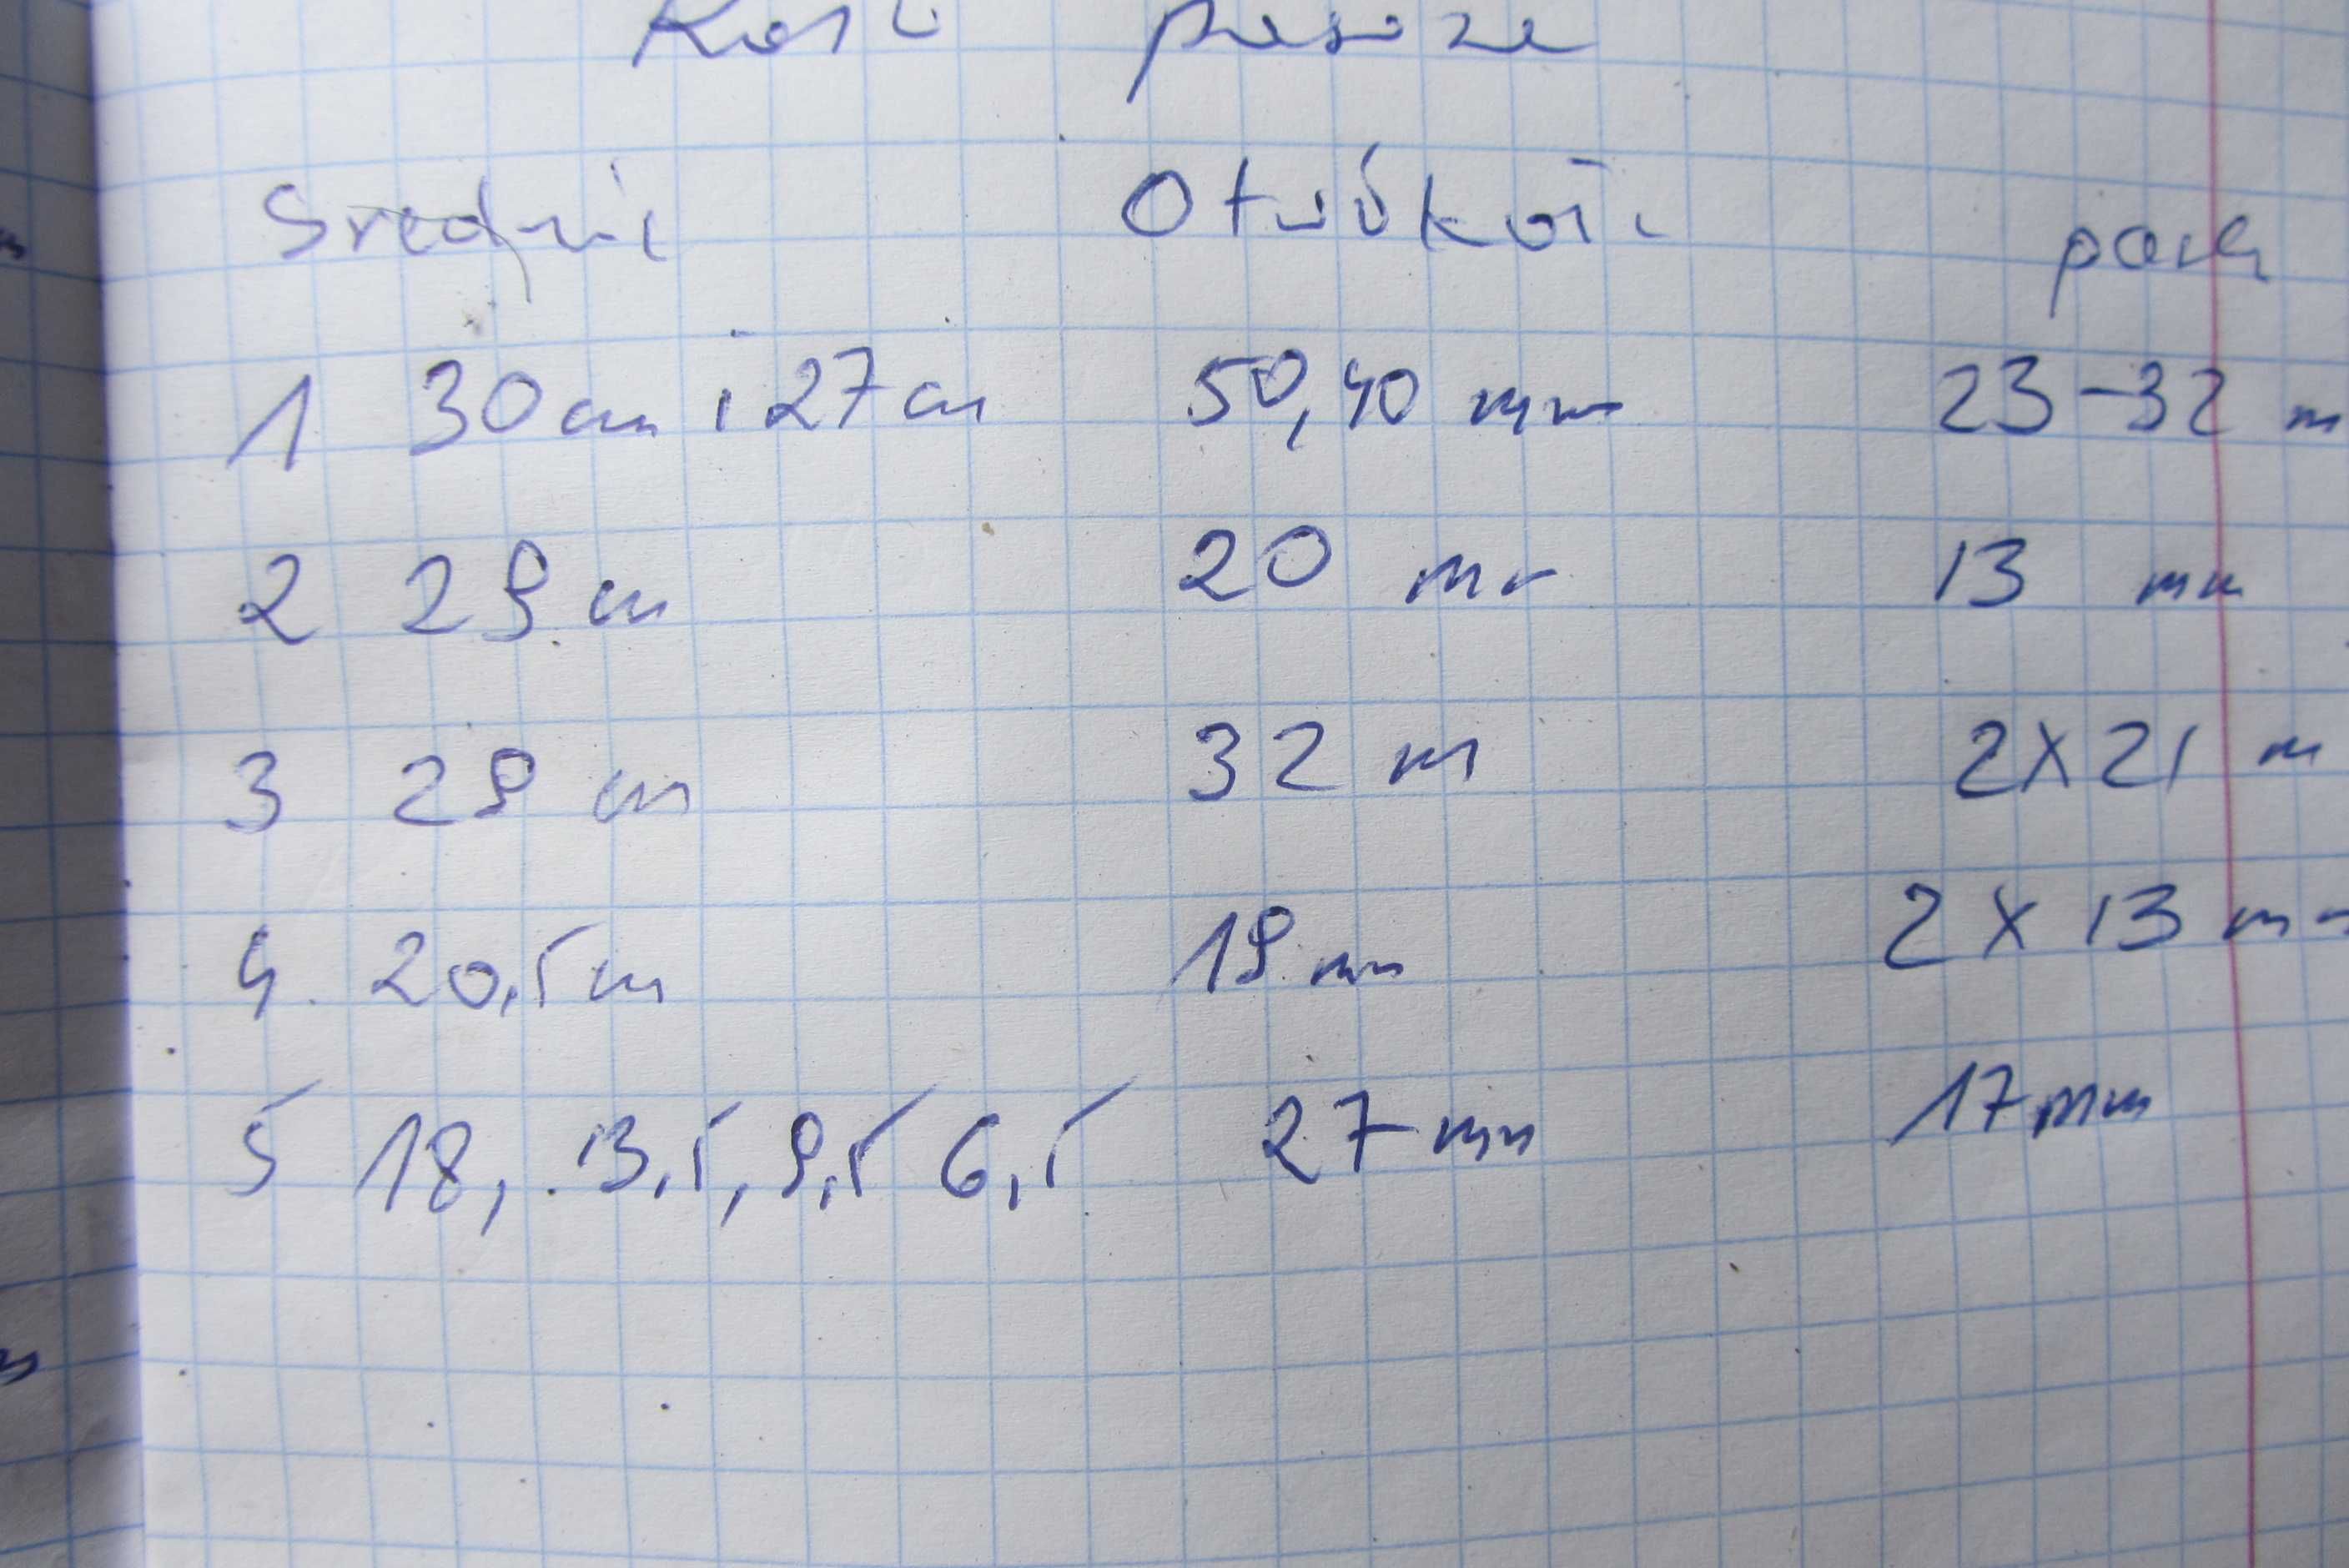 Koła pasoze
Srednic Otwór koła pasa
1 30 cm i 27 cm 50,40 mm 23-32 m
2 29 cm 20 mm 13 mm
3 29 cm 32 m 2X21 m
4. 20,5 cm 19 mm 2 X 13 mm
5 18, 13,5, 9,5 6,5 27 mm 17 mm